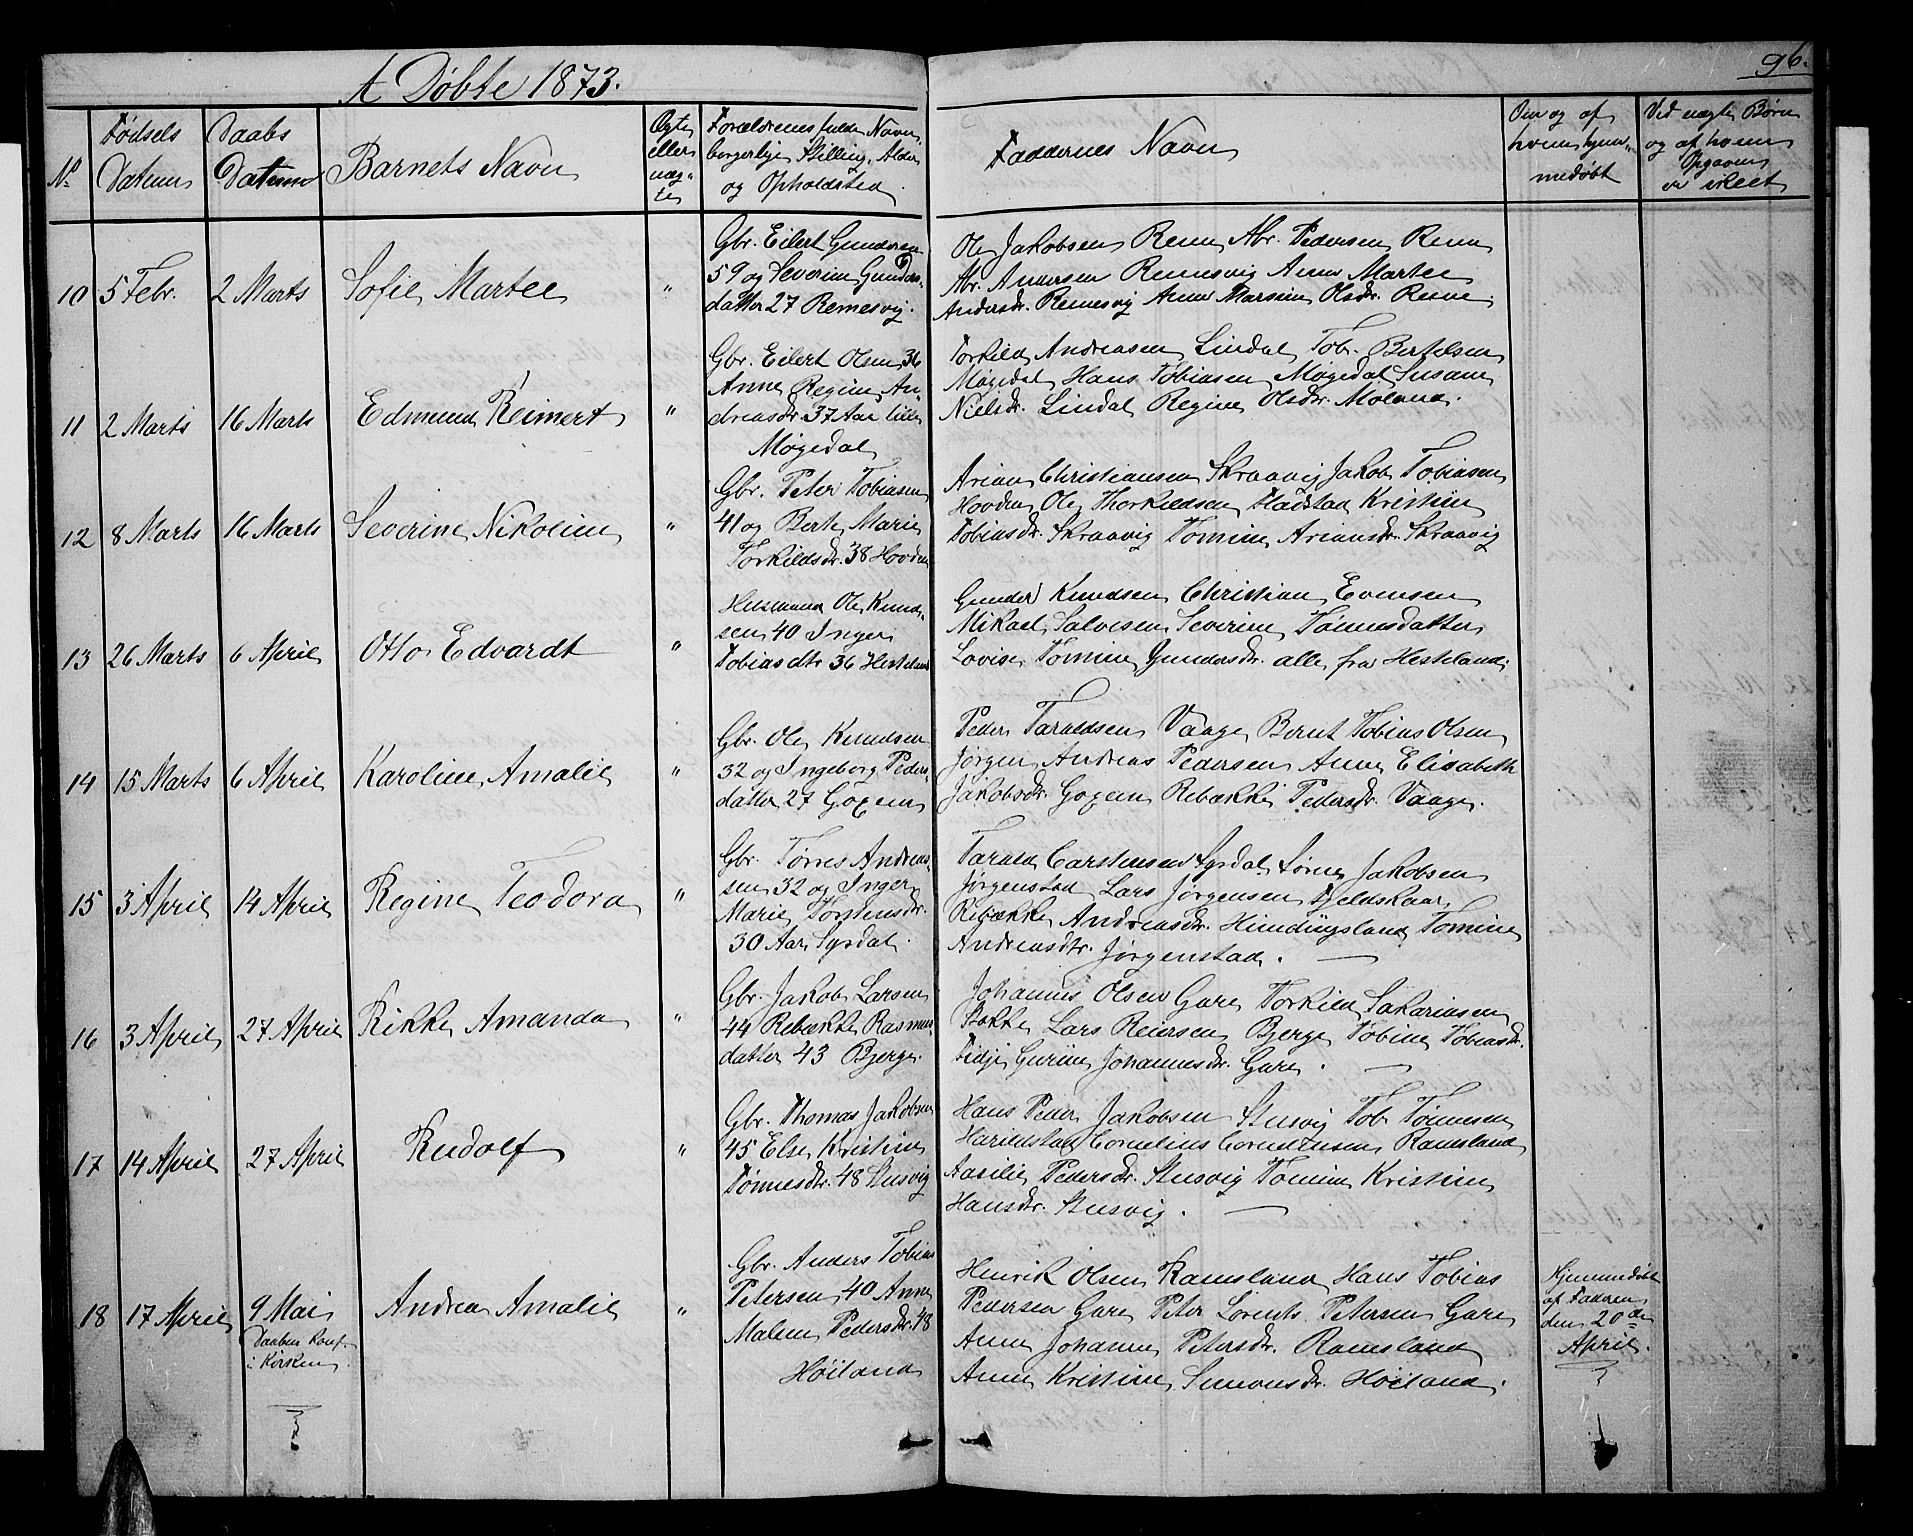 A Døbte 1873.
96.
No
Fødsels Datum
Daabs Datum
Barnets Navn
Ægte eller uægte
Forældrenes fulde Navn, borgerlige Stilling, Alder og Opholdsted.
Faddernes Navn
Om og af hvem hjemmedøbt
Ved uægte Børn og af hvem Opgaven er skeet
10 5 Febr. 2 Marts Sofie Martee "
Gbr. Eilert Gundersen
59 og Severine Gunders-
datter 27 Remesvig.
Ole Jakobsen Reme Abr. Pedersen Reme
Abr. Andersen Remesvig Anne Martee
Andersdr. Remesvig Anne Marsine Olsdr. Reme
11 2 Marts 16 Marts Edmund Reimert "
Gbr. Eilert Olsen 36
Anne Regine An-
dreasdr. 37 Aar lille
Møgedal
Torkild Andreasen Lindal Tob. Bertelsen
Møgedal Hans Tobiasen Møgedal Susane
Nielsdr. Lindal Regine Olsdr. Moland.
12 8 Marts 16 Marts Severine Nikoline "
Gbr. Peter Tobiasen
41 og Berte Marie
Torkildsdr. 38 Hovden
Arian Christiansen Skraavig Jakob Tobiasen
Hovden Ole Thorkildsen Fladstad Kristine
Tobiasdr. Skraavig Tomine Ariansdr. Skraavig
13 26 Marts 6 April Otto Edvardt "
Husmand Ole Knud-
sen 40 Inger
Tobiasdtr 36 Hesteland
Gunder Knudsen Christian Evensen
Mikael Salvesen Severine Tønnesdatter
Lovise Tomine Gundersdr. alle fra Hesteland.
14 15 Marts 6 April Karoline Amalie "
Gbr. Ole Knudsen
32 og Ingeborg Peders-
datter 27 Goxem
Peder Taraldsen Vaage Bernt Tobias Olsen
Jørgen Andreas Pedersen Anne Elisabeth
Jakobsdr. Goxem Rebække Pedersdr. Vaage.
15 3 April 14 April Regine Teodora "
Gbr. Tørres Andreas-
sen 32 og Inger
Marie Torstensdr.
30 Aar Syrdal.
Tarald Carstensen Syrdal Søren Jakobsen
Jørgenstad Lars Jørgensen Fjeldskaar
Rebække Andreasdr. Hundingsland Tomine
Andreasdtr. Jørgenstad.
16 3 April 27 April Rikke Amanda "
Gbr. Jakob Larsen
44 Rebække Rasmus-
datter 43 Bjerge.
Johannes Olsen Gare Torkild Sakariasen
Stokke Lars Reiersen Bjerge Tobine Tobiasdr.
Fidje Gurine Johannesdr. Gare.
17 14 April 27 April Rudolf "
Gbr. Thomas Jakobsen
45 Else Kristine
Tønnesdr. 48 Stusvig
Hans Peder Jakobsen Stusvig Tob. Tønnesen
Harildstad Cornelius Corneliusen Ramsland
Aasilie Pedersdr. Stusvig Tomine Kristine
Hansdr. Stusvig.
18 17 April 9 Mai Andrea Amalie "
Daaben Konf.
i Kirken.
Gbr. Anders Tobias
Petersen 40 Anne
Malene Pedersdr. 48
Høiland
Henrik Olsen Ramsland Hans Tobias
Pedersen Gare Peter Lorents Petersen Gare
Anne Johanne Petersdr. Ramsland
Anne Kristine Simonsdr. Høiland.
Hjemmedøbt
af Faderen
den 20de
April.